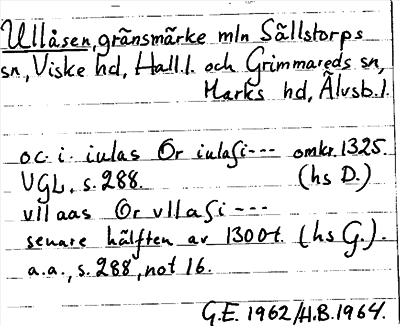 Ullåsen, gränsmärke mln Sällstorps
sn, Viske hd, Hall.l. och Grimmareds sn,
Marks hd, Älvsb.l.
oc. i. iulas Or iulasi--- omkr. 1325.
VGL, s. 288. (hs D.)
vll aas Or vllasi ---
senare hälften av 1300t. (hs G.).
a.a., s. 288, not 16.
G.E. 1962/H.B. 1964.